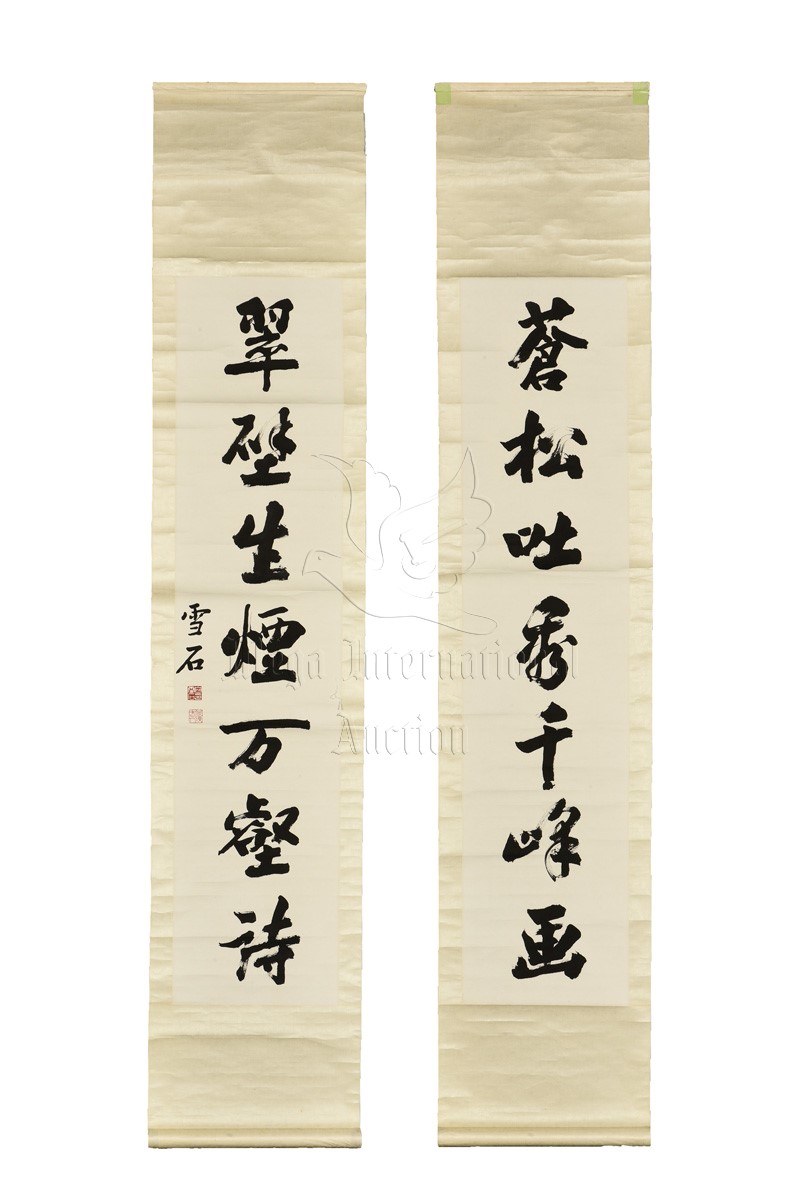 蒼松吐秀千峰画
翠壁生煙万壑詩
雪石
Mega International
Auction